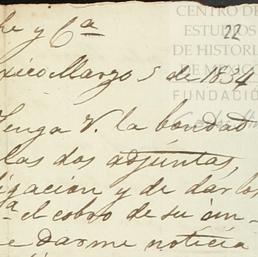 CENTRO DE
ESTUDIOS
DE HISTORIA
DE MEXICO
FUNDACIÓN
22
he y Cª
exico Marzo 5 de 1834
Tenga V. la bondad
las dos adjuntas,
igación y de darlos
ª el cobro de su im-
e darme noticia